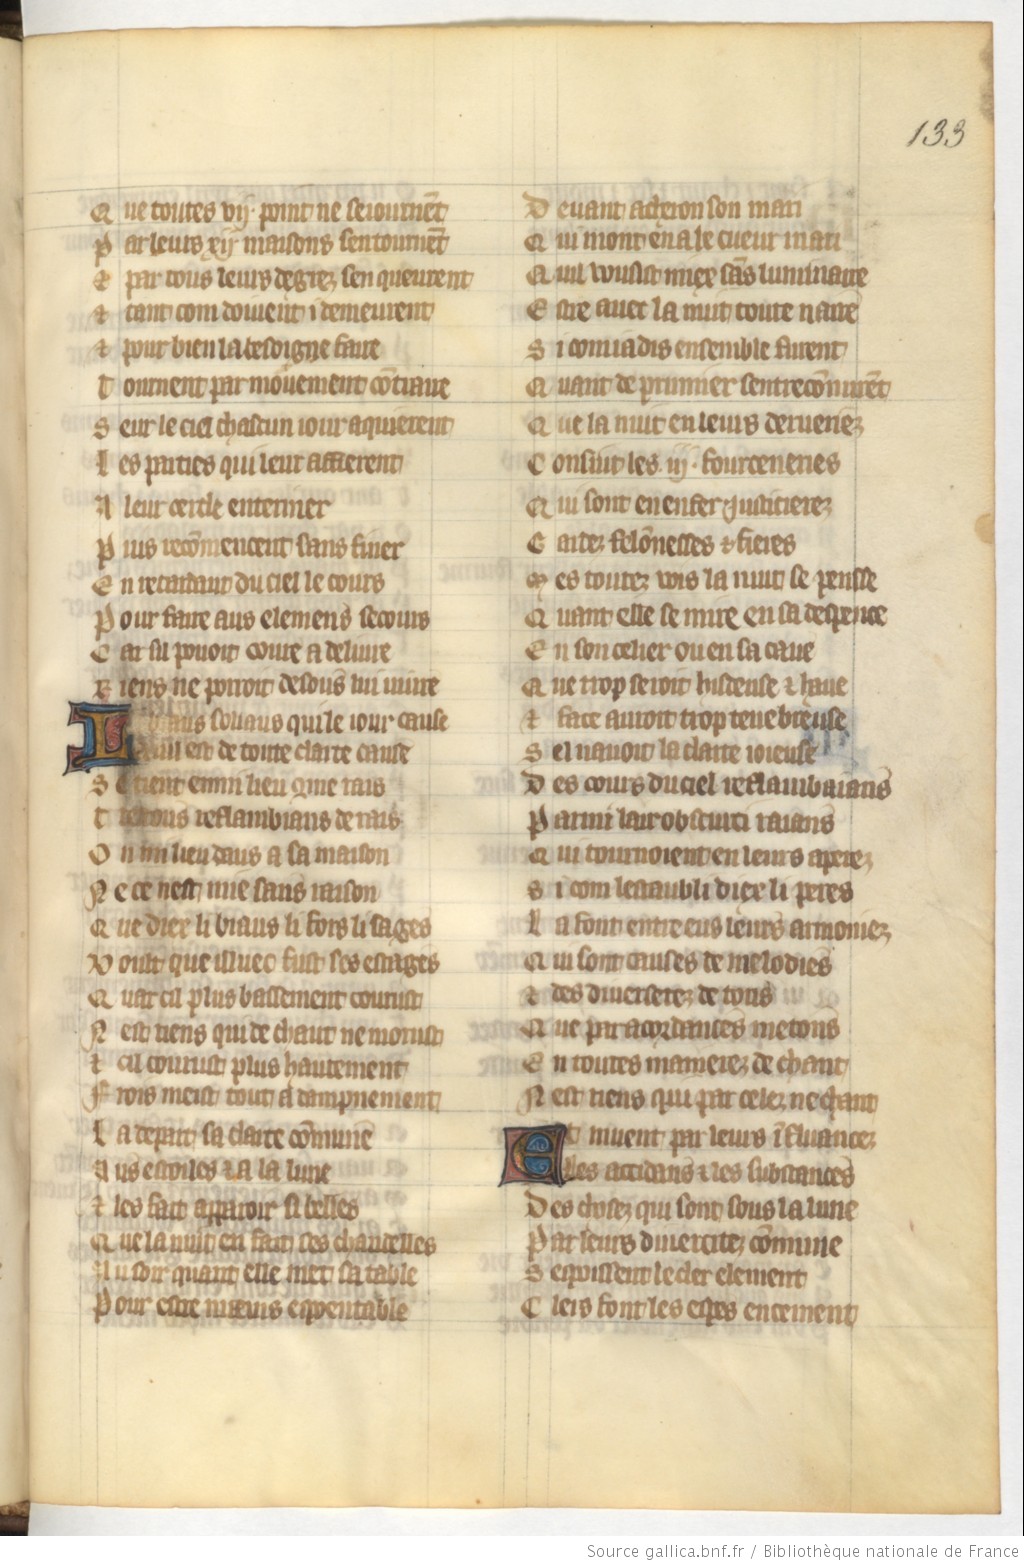 133
Q ue toutes vij. point ne seiournẽt
P ar leurs xij maisons sentournẽt
⁊ par tous leurs degrez sen queurent
⁊ tant com doiuent i demeurent
⁊ pour bien la besoigne faire
T ournent par mouuement cõtraire
S eur le ciel chascun iour aquierent
L es parties qui leur affierent
A leur cercle enteriner
P uis recõmencent sans finer
E n retardant du ciel le cours
P our faire aus elemens secours
C ar sil pouoit courre a deliure
R iens ne porroit desous lui uiure
L i biaus solaus qui le iour cause
Q uil est de toute clarte cause
S e tient enmi lieu cõme rois
T restous reflambians de rais
O n mi lieu daus a sa maison
N e ce nest mie sans raison
Q ue diex li biaus li fors li sages
V oult que illuec fust ses estages
Q uar cil plus bassement courust
N est riens qui de chaut ne morust
⁊ cil courust plus hautement
F rois meist tout a dampnement
L a depart sa clarte cõmune
A us estoiles ⁊ a la lune
⁊ les fait apparoir si belles
Q ue la nuit en fait ses chandelles
A u soir quant elle met sa table
P our estre mains espoentable
D euant acheron son mari
Q ui mont en a le cueur mari
Q uil vousist miex sãs luminaire
E stre auec la nuit toute naire
S i com iadis ensemble furent
Q uant de prumier sentrecõnurẽt
Q ue la nuit en leurs derueriez
C onsiut les .iij. fourceneries
Q ui sont en enfer iusticierez
C ardez felõnesses ⁊ fieres
M es toutez vois la nuit se pensse
Q uant elle se mire en sa despence
E n son celier ou en sa caue
Q ue trop seroit hisdeuse ⁊ haue
⁊ face auroit trop tenebreuse
S el nauoit la clarte ioieuse
D es cours du ciel reflamboians
P armi lair obscurci raians
Q ui tournoient en leurs aperez
S i com lestaubli diex li peres
L a font entre eus leurs armoniez
Q ui sont causes de melodies
⁊ des diuersetez de tons
Q ue par acordances metons
E n toutes manierez de chant
N est riens qui par celez ne chant
E t muent par leurs ĩfluancez
L es accidans ⁊ les substances
D es chosez qui sont sous la lune
P ar leurs diuercitez cõmune
S espoissent le cler element
C lers font les espes encement
Source gallica.bnf.fr / Bibliothèque nationale de France